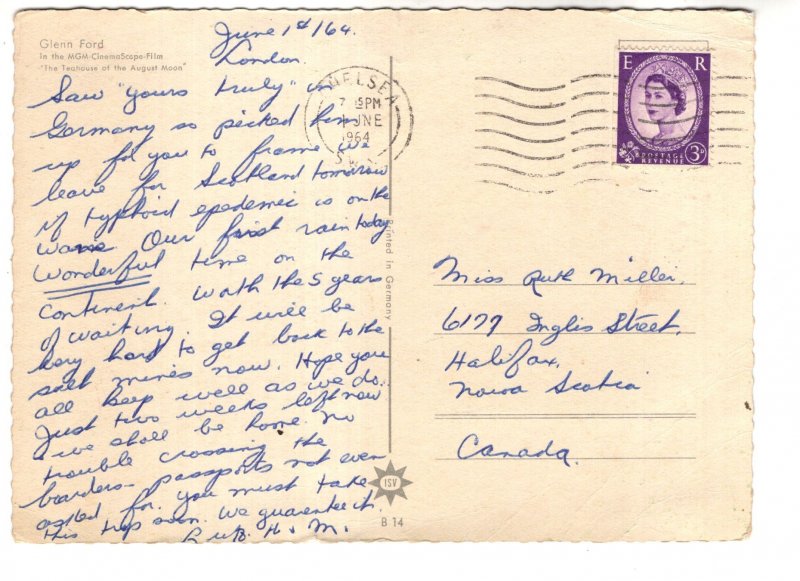 Glenn Ford
In the MGM-CinemaScope-Film
"The Teahouse of the August Moon"
June 1st/64.
London.
Saw "yours truly" in
Germany so picked him
up for you to frame. We
leave for Scotland tomorrow
if typhoid epedemic is on the
wane Our first rain today
Wonderful time on the
continent. Worth the 5 years
of waiting. It will be
very hard to get back to the
salt mines now. Hope you
all keep well as we do.
Just two weeks left now
& we shall be home. No
trouble crossing the
boarders - passports not even
asked for. You must take
this trip soon. We guarentee it.
H. & M.
CHELSEA
PM
JUNE
1964
S.W.3
E R
POSTAGE
REVENUE
3D
Printed in Germany
Miss Ruth Miller.
6177 Inglis Street,
Halifax,
Nova Scotia
Canada.
ISV
B 14